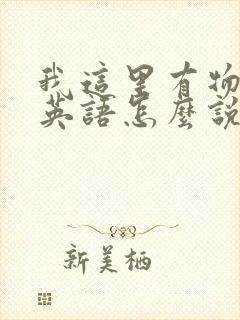 我這里有物
英語怎麼說
新美栖